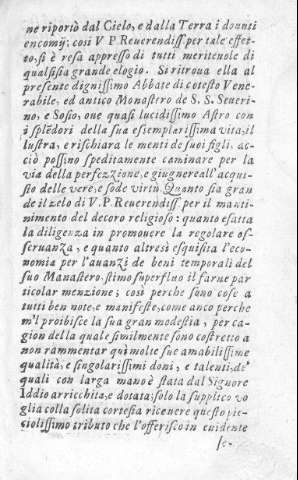 ne riportò dal Cielo, e dalla Terra i douuti
encomij; così V. P. Reuerendiss. per tale effet-
to, si è resa appresso di tutti meriteuole di
qualsisia grande elogio. Si ritroua ella al
presente dignissimo Abbate di cotesto Vene-
rabile, ed antico Monastero de S. S. Seueri-
no, e Sosio, oue quasi lucidissimo Astro con
i splẽdori della sua esemplarissima vita, il
lustra, e rischiara le menti de suoi figli, ac-
ciò possino speditamente caminare per la
via della perfezzione, e giugnere all'acqui-
sto delle vere, e sode virtù. Quanto sia gran
de il zelo di V. P. Reuerendiss. per il mante-
nimento del decoro religioso: quanto esatta
la diligenza in promouere la regolare os-
seruanza, e quanto altresì esquisita l'eco-
nomia per l'auanzi de beni temporali del
suo Manastero, stimo superfluo il farne par
ticolar menzione; così perche sono cose a
tutti ben note, e manifeste, come anco perche
m'l proibisce la sua gran modestia, per ca-
gion della quale similmente sono costretto a
non rammentar quì molte sue amabilissime
qualità, e singolarissimi doni, e talenti, de'
quali con larga mano è stata dal Signore
Iddio arricchita, e dotata; solo la supplico vo
glia colla solita cortesia riceuere questo pic-
ciolissimo tributo che l'offerisco in euidente
se-